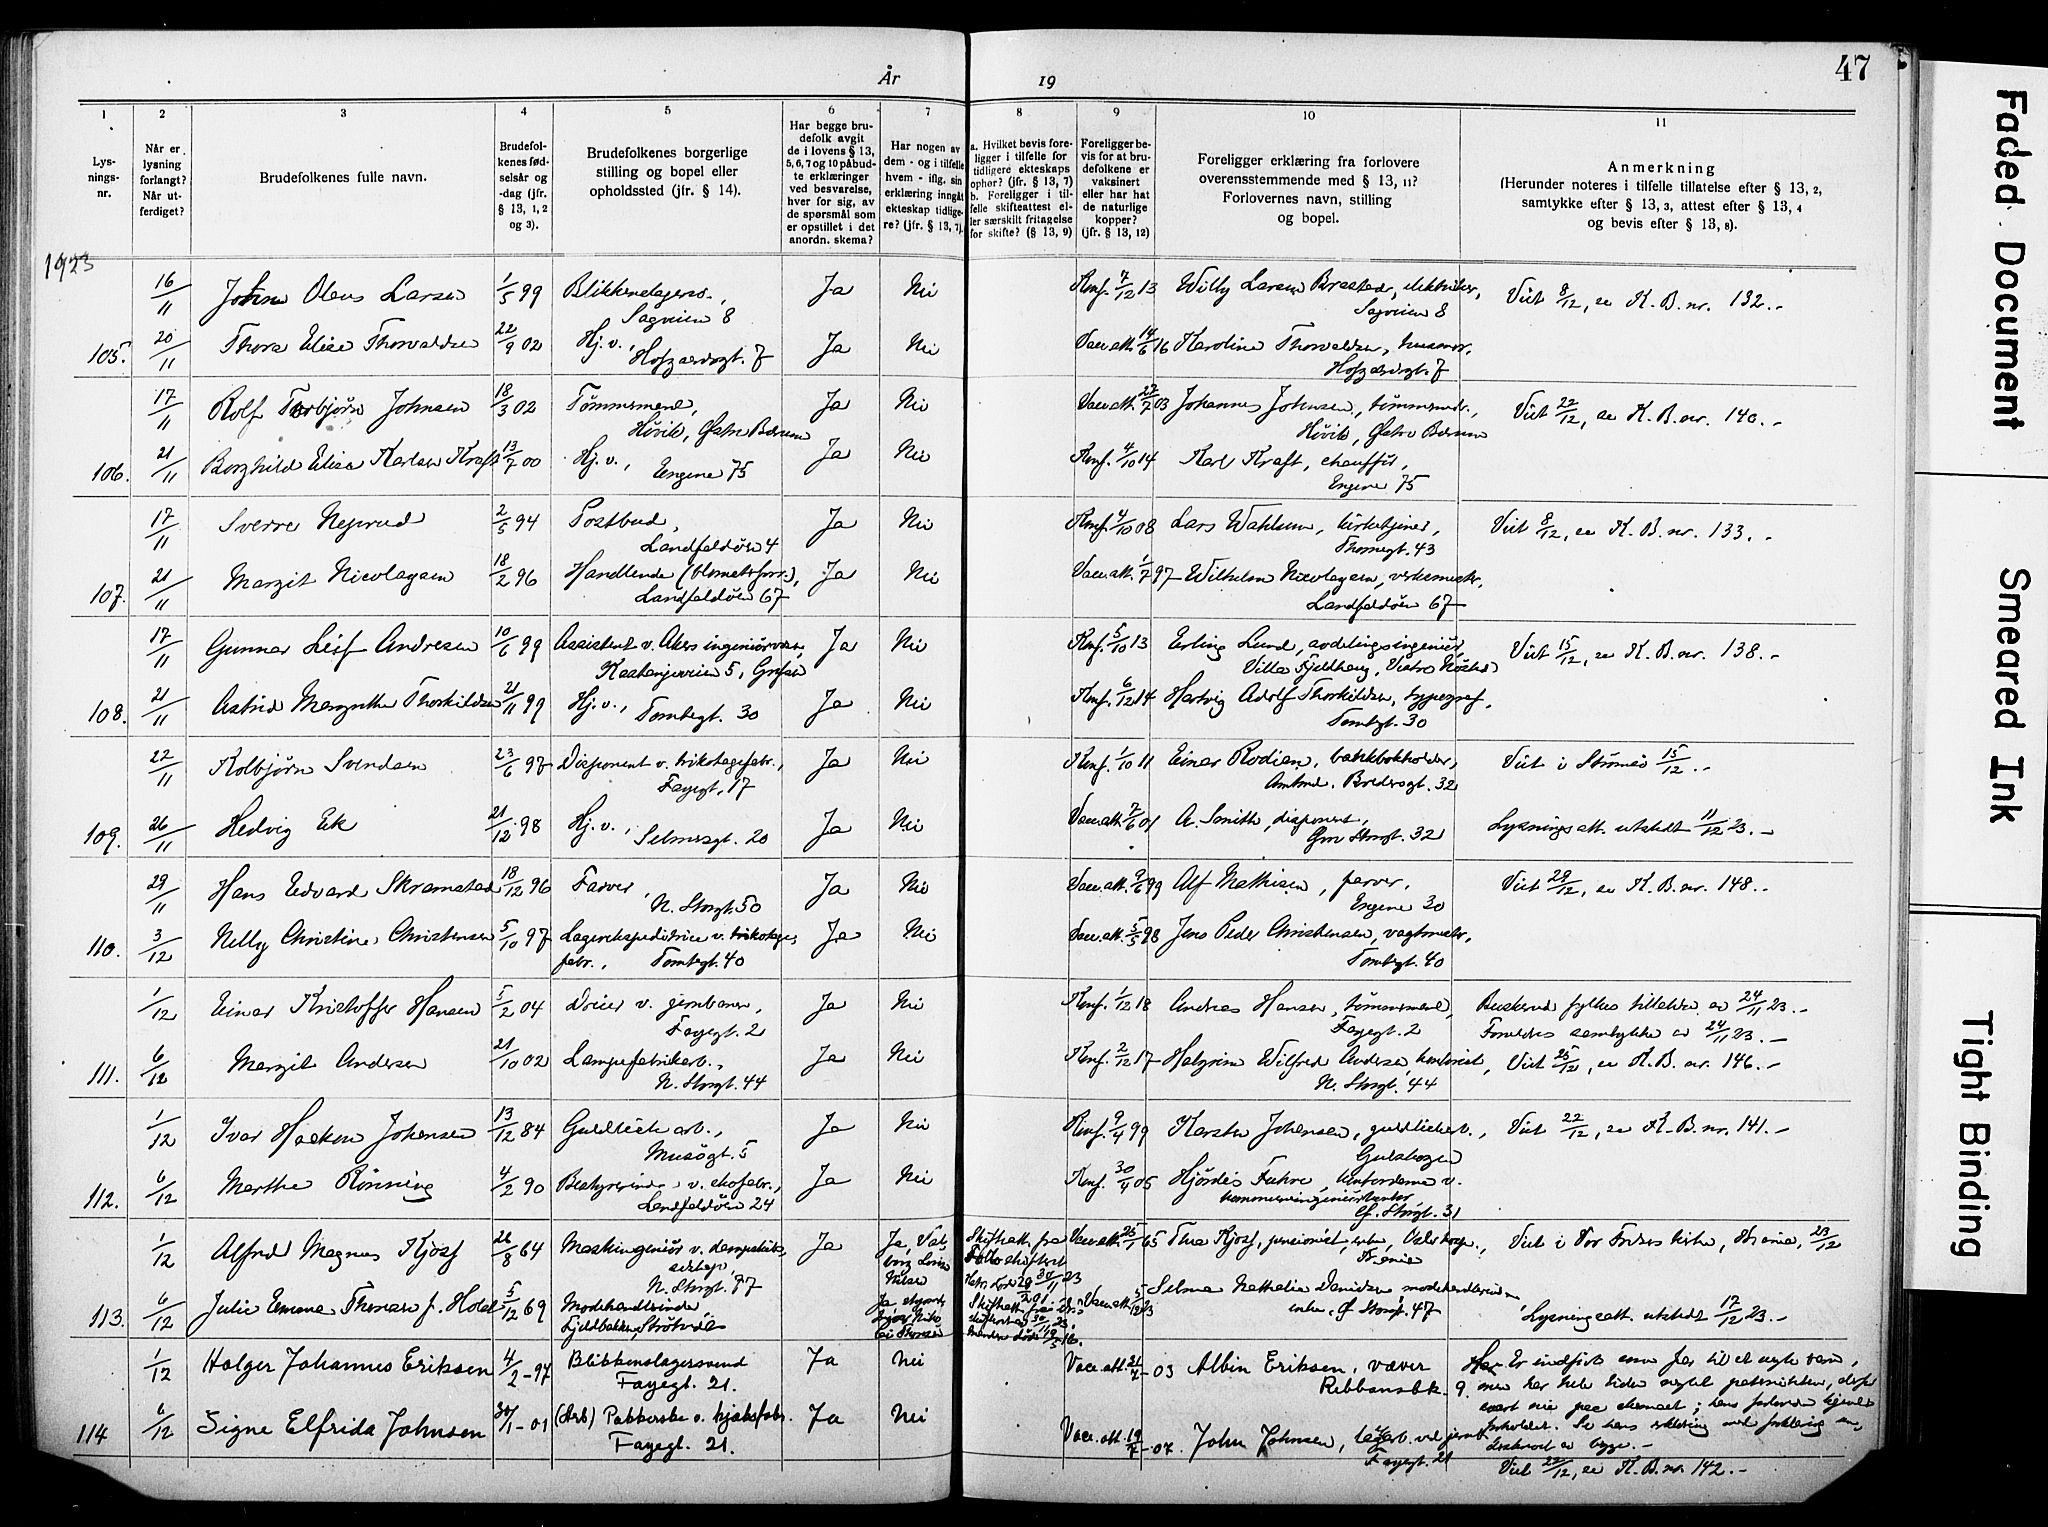 År 19
47
1 2 3 4 5 6 7 8 9 10 11
Lysnings-nr.
Når er lysning forlangt? Når utferdiget?
Brudefolkenes fulle navn.
Brudefolkenes fødselsår og -dag (jfr. § 13, 1, 2 og 3).
Brudefolkenes borgerlige stilling og bopel eller opholdssted (jfr. § 14).
Har begge brudefolk avgit de i lovens § 13, 5, 6, 7 og 10 påbudte erklæringer ved besvarelse, hver for sig, av de spørsmål som er opstillet i det anordn. skema?
Har nogen av dem - og i tilfelle hvem - iflg. sin erklæring inngått ekteskap tidligere? (jfr. § 13, 7).
a. Hvilket bevis foreligger i tilfelle for tidligere ekteskaps ophør? (jfr. § 13, 7) b. Foreligger i tilfelle skifteattest eller særskilt fritagelse for skifte? (§ 13, 9)
Foreligger bevis for at brudefolkene er vaksinert eller har hat de naturlige kopper? (jfr. § 13, 12)
Foreligger erklæring fra forlovere overensstemmende med § 13, 11? Forlovernes navn, stilling og bopel.
Anmerkning (Herunder noteres i tilfelle tillatelse efter § 13, 2, samtykke efter § 13, 3, attest efter § 13, 4 og bevis efter § 13, 8).
1923
16/11 Johan Olaus Larsen 1/5 99 Blikkenslagersv., Ja Nei Konf. 7/12 13 Willy Larsen Brastad, elektriker, Viet 8/12, se K.B. nr. 132.-
Sagveien 8 Sagveien 8
105. 20/11 Thora Elise Thorvaldsen 22/9 02 Hj. v., Ja Nei Vacc.att. 14/6 16 Karoline Thorvaldsen, husmor,
Hofgaardsgt. 7 Hofgaardsgt. 7
17/11 Rolf Torbjørn Johnsen 18/3 02 Tømmermand, Ja Nei Vacc.att. 27/7 03 Johannes Johnsen, tømmermdr., Viet 22/12, se K.B. nr. 140.-
Høvik, Østre Bærum Høvik, Østre Bærum
106. 21/11 Borghild Elise Karlsen Kraft 13/7 00 Hj. v., Ja Nei Konf. 4/10 14 Karl Kraft, chauffør,
Engene 75 Engene 75
17/11 Sverre Nejsrud 2/5 94 Postbud, Ja Nei Konf. 4/10 08 Lars Wahlum, kirketjener, Viet 8/12, se K.B. nr. 133.-
Landfaldøen 4 Thornegt. 43
107. 21/11 Margit Nicolaysen 18/2 96 Handlende (blomsterforr.), Ja Nei Vacc.att. 1/7 97 Wilhelm Nicolaysen, verksmestr.,
Landfaldøen 67 Landfaldøen 67
17/11 Gunnar Leif Andresen 10/6 99 Assistent v. Akers ingeniørvæsen, Ja Nei Konf. 5/10 13 Erling Lund, avdelingsingeniør, Viet 15/12, se K.B. nr. 138.-
Kastanjeveien 5, Grefsen Villa Fjeldhaug, Vestre
108. 21/11 Astrid Margrethe Thorkildsen 21/11 99 Hj. v., Ja Nei Konf. 6/12 14 Hartvig Adolf Thorkildsen, typograf,
Tomtegt. 30 Tomtegt. 30
22/11 Kolbjørn Svendsen 23/6 97 Disponent v. trikotagefabr., Ja Nei Konf. 1/10 11 Einar Rodian, bankbokholder, Viet i Strømsø 15/12.-
Fayegt. 17 Amtmd. Bredersgt. 32
109. 26/11 Hedvig Ek 21/12 98 Hj. v., Ja Nei Vacc.att. 7/6 01 A. Smith, disponent, Lysningsatt. utstedt 11/12 23.-
Selmersgt. 20 Gml. Storgt. 32
29/11 Hans Edvard Skramstad 18/12 96 Farver, Ja Nei Vacc.att. 9/6 99 Alf Mathisen, farver, Viet 29/12, se K.B. nr. 148.-
N. Storgt. 50 Engene 30
110. 3/12 Nelly Christine Christensen 5/10 97 Lagerekspeditrice v. trikotage- Ja Nei Vacc.att. 5/5 98 Jens Peder Christensen, vagtmstr.,
fabr., Tomtegt. 40 Tomtegt. 40
1/12 Einar Kristoffer Hansen 5/2 04 Dreier v. jernbanen, Ja Nei Konf. 1/12 18 Andreas Hansen, tømmermand, Buskerud fylkes tillatelse av 24/11 23.-
Fayegt. 2 Fayegt. 2 Foreldres samtykke av 24/11 23.-
111. 6/12 Margit Andersen 21/10 02 Lampefabrikarb., Ja Nei Konf. 2/12 17 Halgrim Wilfred Andersen, kontorist, Viet 25/12, se K.B. nr. 146.-
N. Storgt. 44 N. Storgt. 44
1/12 Ivar Haakon Johansen 13/12 84 Guldlistearb., Ja Nei Konf. 9/4 99 Karsten Johansen, guldlistearb., Viet 22/12, se K.B. nr. 141.-
Musøgt. 5 Gulskogen
112. 6/12 Marthe Rønning 4/2 90 Bestyrerinde v. skofabr., Ja Nei Konf. 30/4 05 Hjørdis Fahre, kontordame v.
Landfaldøen 24 kommuneingeniørkontor,
Ø. Storgt. 31
1/12 Alfred Magnus Kjøsf 26/8 64 Maskingeniør v. Ja Ja, Valborg Lovise Nilsen Skifteatt. fra Follo skifterett Vacc.att. 25/1 65 Thea Kjøsf, pensionist, enke, Viet i Vor Frelsers kirke, Kr.ania, 23/12
N. Storgt. 77 Kr.ania
113. 6/12 Julie Emma Thoresen f. Holst 5/12 69 Modehandlerinde, Vacc.att. Selma Nathalie Danielsen modehandlerinde,
Fjeldbakken, Strøtvedt enke, Ø. Storgt. 47 Lysningsatt. utstedt 17/12 23.-
1/12 Holger Johannes Eriksen 4/2-97 Blikkenslagersvend Ja Nei Vacc.att. 21/7-03 Albin Eriksen, væver Er indført som far til et uegte barn,
Fayegt. 21. Ribbansbk. 9. men har hele tiden negtet paterniteten,
114 6/12 Signe Elfrida Johnsen 30/1-01 (Arb) Pakkerske v. kjeksfabr. Ja Nei Vacc.att. 19/7-07. John Johnsen, ved jernb. forholdet. Se hans erklæring
Fayegt. 21. Fayegt. 21
Viet 22/12, se K.B. nr. 142.-
Faded Document
Smeared Ink
Tight Binding